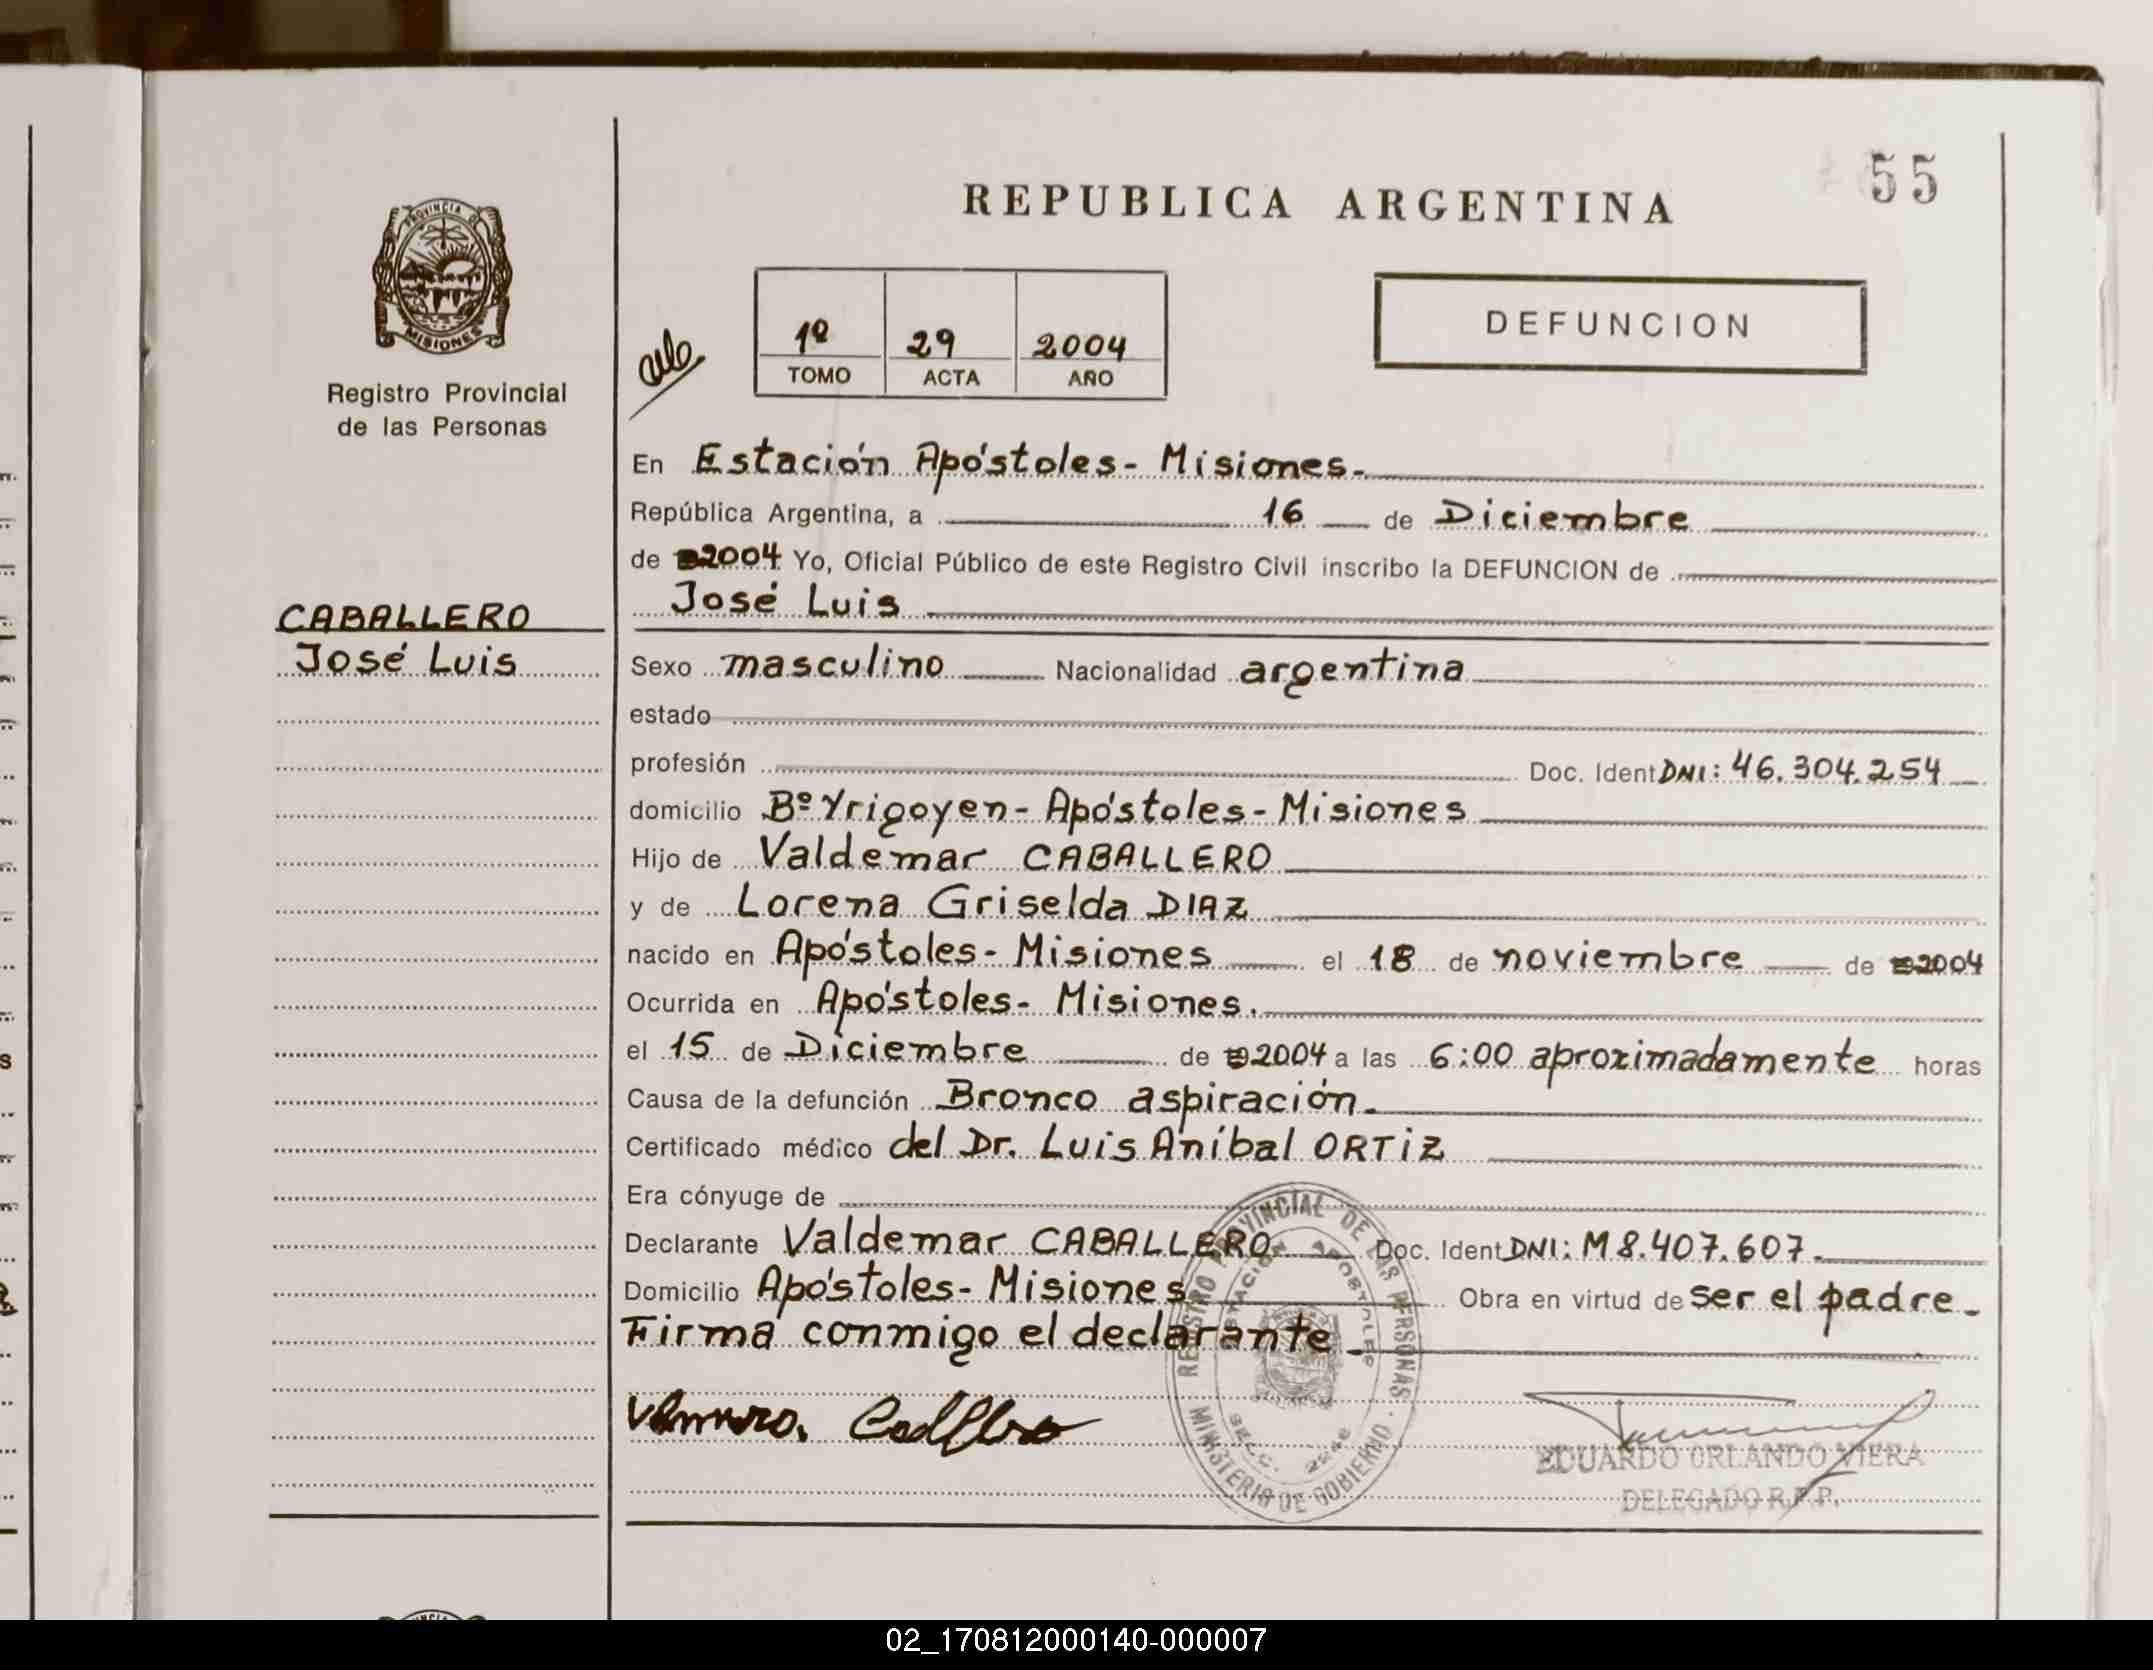 55
REPUBLICA ARGENTINA
PROVINCIA DE
MISIONES
Registro Provincial
de las Personas
1º 29 2004
TOMO ACTA AÑO
DEFUNCION
En Estación Apóstoles - Misiones.
República Argentina, a 16 de Diciembre
de 2004 Yo, Oficial Público de este Registro Civil inscribo la DEFUNCION de
José Luis
CABALLERO
José Luis
Sexo masculino Nacionalidad argentina
estado
profesión Doc. Ident DNI: 46.304.254
domicilio Bº Yrigoyen - Apóstoles - Misiones
Hijo de Valdemar CABALLERO
y de Lorena Griselda DIAZ
nacido en Apóstoles - Misiones el 18 de noviembre de 2004
Ocurrida en Apóstoles - Misiones.
el 15 de Diciembre de 2004 a las 6:00 aproximadamente horas
Causa de la defunción Bronco aspiración.
Certificado médico del Dr. Luis Aníbal ORTIZ
Era cónyuge de
Declarante Valdemar CABALLERO Doc. Ident DNI: M 8.407.607.
Domicilio Apóstoles - Misiones Obra en virtud de ser el padre.
Firma conmigo el declarante.
REGISTRO PROVINCIAL DE LAS PERSONAS
ESTACION APOSTOLES
MINISTERIO DE GOBIERNO
EDUARDO ORLANDO VIERA
DELEGADO R.P.P.
02_170812000140-000007